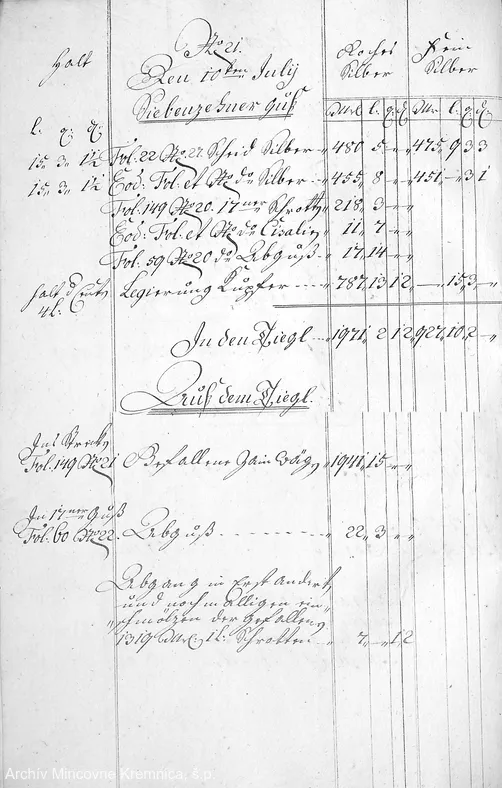 No 21.
Halt
Den 10ten July
Rohes Silber
Fein Silber
Siebenzehner Guß
l. q: d:
Mark l. q d
Mk. l. q d
15 3 1½ Fol. 22 No 27. Scheid Silber 480 5 - - 475 9 3 3
15 3 1½ Eod: Fol. et No do Silber 455 8 - - 451 - 3 1
Fol. 149 No 20. 17ner Schrott 218 3 - -
Eod: Fol. et No do Cisalien 11 7 - -
Fol. 59 No 20 do Abguß 17 14 - -
4 l: Legierung Kupfer 787 13 12 - 15 3 -
In den Tiegl 1971 2 12 927 10 2 -
Auß dem Tiegl.
Ins Streck
Fol. 149 No 21 Gefallene Zain 1941 15 - -
In 17ner Guß
Fol. 60 No 22. Abguß 22 3 - -
Abgang in Erst Andert
und nochmalligen ein
schmölzen der Gefallen
1319 Mk: 1 l: Schrotten 7 - 12
Archív Mincovne Kremnica, š.p.